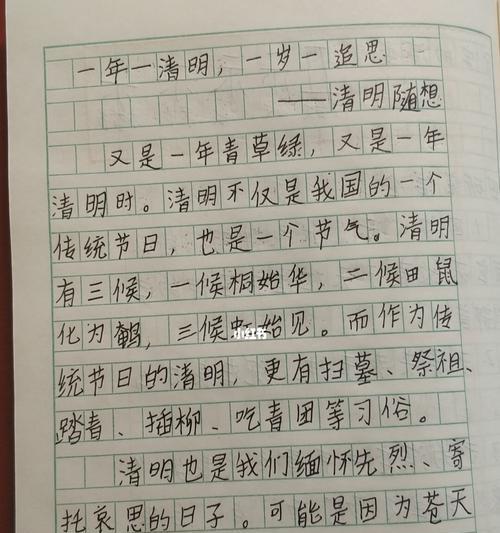 一年一清明，一岁一追思
——清明随想
又是一年青草绿，又是一年
清明时。清明不仅是我国的一个
传统节日，也是一个节气。清明
有三候，一候桐始华，二候田鼠
化为鹌，三候始见。而作为传
小红书
统节日的清明，更有扫墓、祭祖、
踏青、插柳、吃青团等习俗。
清明也是我们缅怀先烈、寄
托哀思的日子。可能是因为苍天